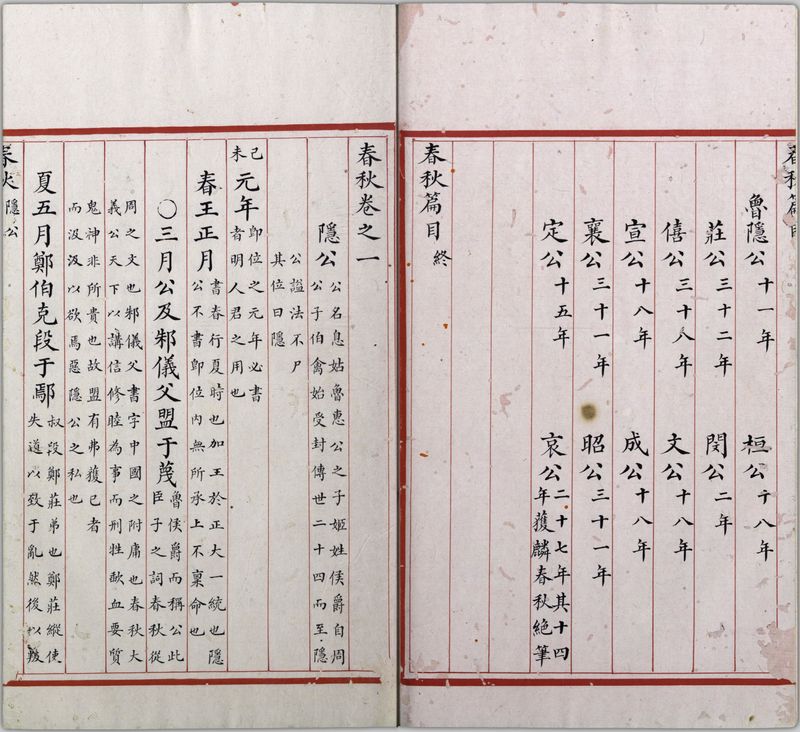 春秋篇目
魯隱公十一年 桓公十八年
莊公三十二年 閔公二年
僖公三十八年 文公十八年
宣公十八年 成公十八年
襄公三十一年 昭公三十一年
定公十五年 哀公二十七年其十四
年獲麟春秋絕筆
春秋篇目 終
春秋卷之一
隱公 公名息姑魯惠公之子姬姓侯爵自周
公子伯禽始受封傳世二十四而至隱
公謚法不尸
其位曰隱
己未元年 即位之元年必書
者明人君之用也
春王正月 書春行夏時也加王於正大一統也隱
公不書即位内無所承上不稟命也
〇三月公及邾儀父盟于蔑 魯侯爵而稱公此
臣子之詞春秋從
周之文也邾儀父書字中國之附庸也春秋大
義公天下以講信修睦為事而刑牲歃血要質
鬼神非所貴也故盟有弗獲已者
而汲汲以欲焉惡隱公之私也
夏五月鄭伯克段于鄢 叔段鄭莊弟也鄭莊縱使
失道以致于亂然後以叛
春秋 隱公